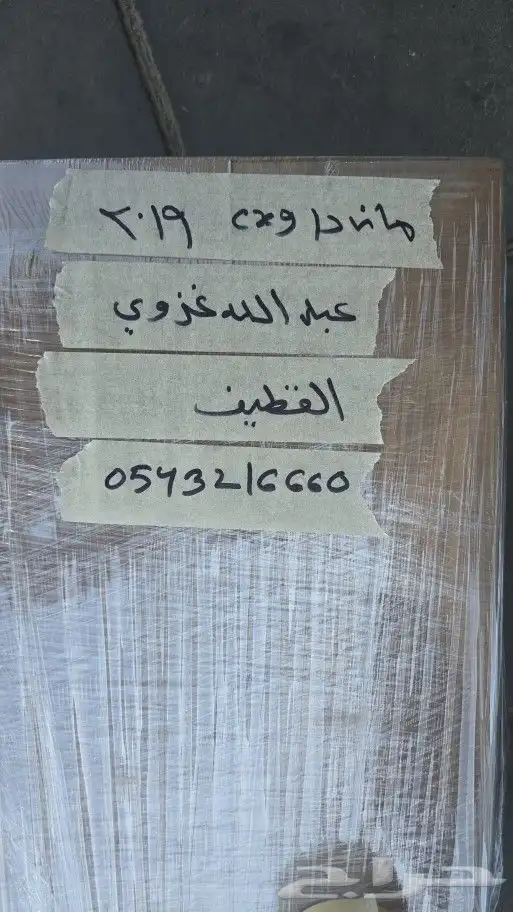 مازدا cx9 ٢٠١٩
عبدالله غزوي
القطيف
0543216660
حراج